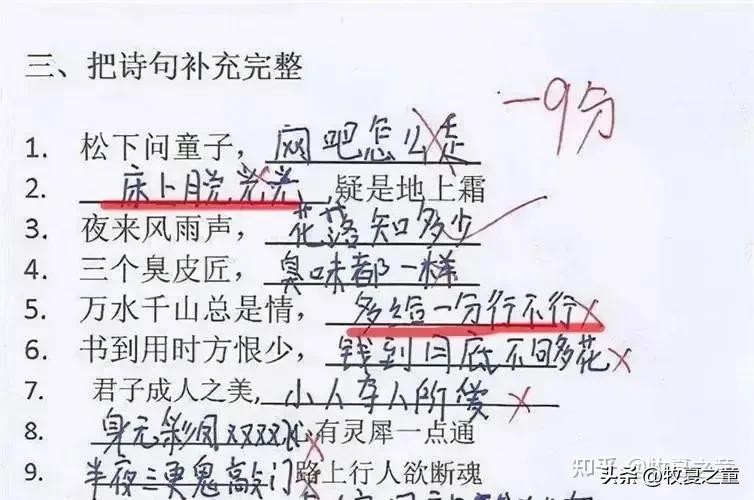 三、把诗句补充完整
-9分
1. 松下问童子，网吧怎么走
2. 床上脱光光，疑是地上霜
3. 夜来风雨声，花落知多少
4. 三个臭皮匠，臭味都一样
5. 万水千山总是情，多给一分行不行
6. 书到用时方恨少，钱到月底不够花
7. 君子成人之美，小人夺人所爱
8. 身无彩凤双双飞心有灵犀一点通
9. 半夜三更鬼敲门路上行人欲断魂
知乎 @牧夏之童
头条 @牧夏之童